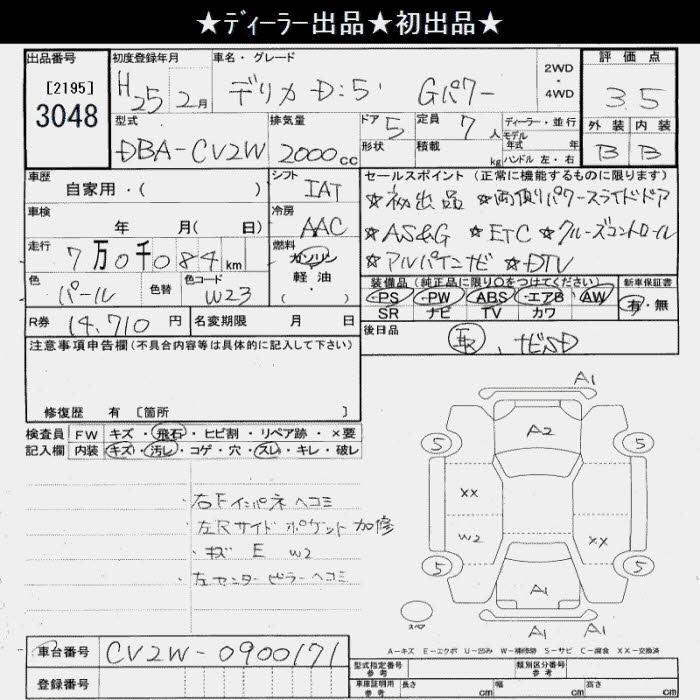 ★ディーラー出品★初出品★
出品番号 初度登録年月 車名・グレード 2WD・4WD 評価点
[2195]
3048 H25 2月 デリカ D:5 Gパワー 3.5
型式 排気量 ドア 定員 ディーラー・並行 外装 内装
DBA-CV2W 2000cc 5 7人 モデル年式 年 B B
形状 積載 kg ハンドル 左・右
車歴 自家用・( ) シフト IAT セールスポイント(正常に機能するものに限ります)
☆初出品 ☆両側パワースライドドア
車検 年 月( 日) 冷房 AAC ☆AS&G ☆ETC ☆クルーズコントロール
走行 7万0千084km 燃料 ガソリン 軽・油 ( ) ☆アルパインナビ ☆DTV
色 パール 色替 色コード W23 装備品(純正品に限り○をつけてください) 新車保証書
PS・PW・ABS・エアB・AW 有・無
SR ナビ TV カワ
R券 14,710円 名変期限 月 日 後日品
注意事項申告欄(不具合内容等は具体的に記入して下さい) 取、ナビSD
修復歴 有 [箇所 ]
検査員 FW キズ・飛石・ヒビ割・リペア跡・×要
記入欄 内装 キズ・汚レ・コゲ・穴・スレ・キレ・破レ
・右Fインパネ ヘコミ
・左Rサイド ポケット 加修
・キズ E W2
・左センターピラーヘコミ
A1
A2
5 5
XX
W2 XX
5 5
A1
スペア A1 A1
A-キズ E-エクボ U-凹み W-補修跡 S-サビ C-腐食 XX-交換済
車台番号 CV2W-0900171
型式指定番号 参考 類別区分番号 参考
登録番号 車庫証明用 参考 長さ cm 幅 cm 高さ cm